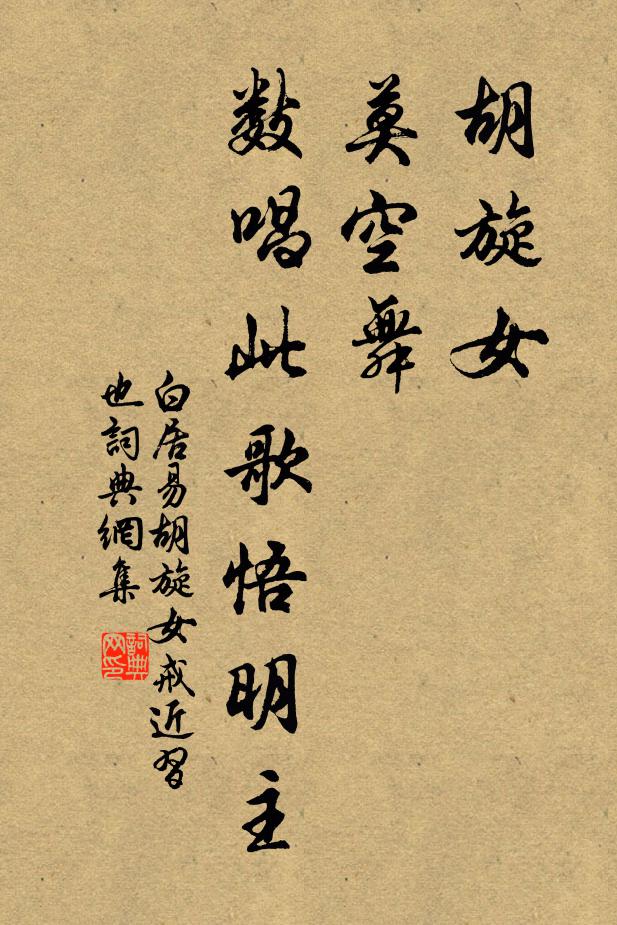 胡旋女
莫空舞
数唱此歌悟明主
白居易胡旋女戒近習
也詞典網集
詞典
网印